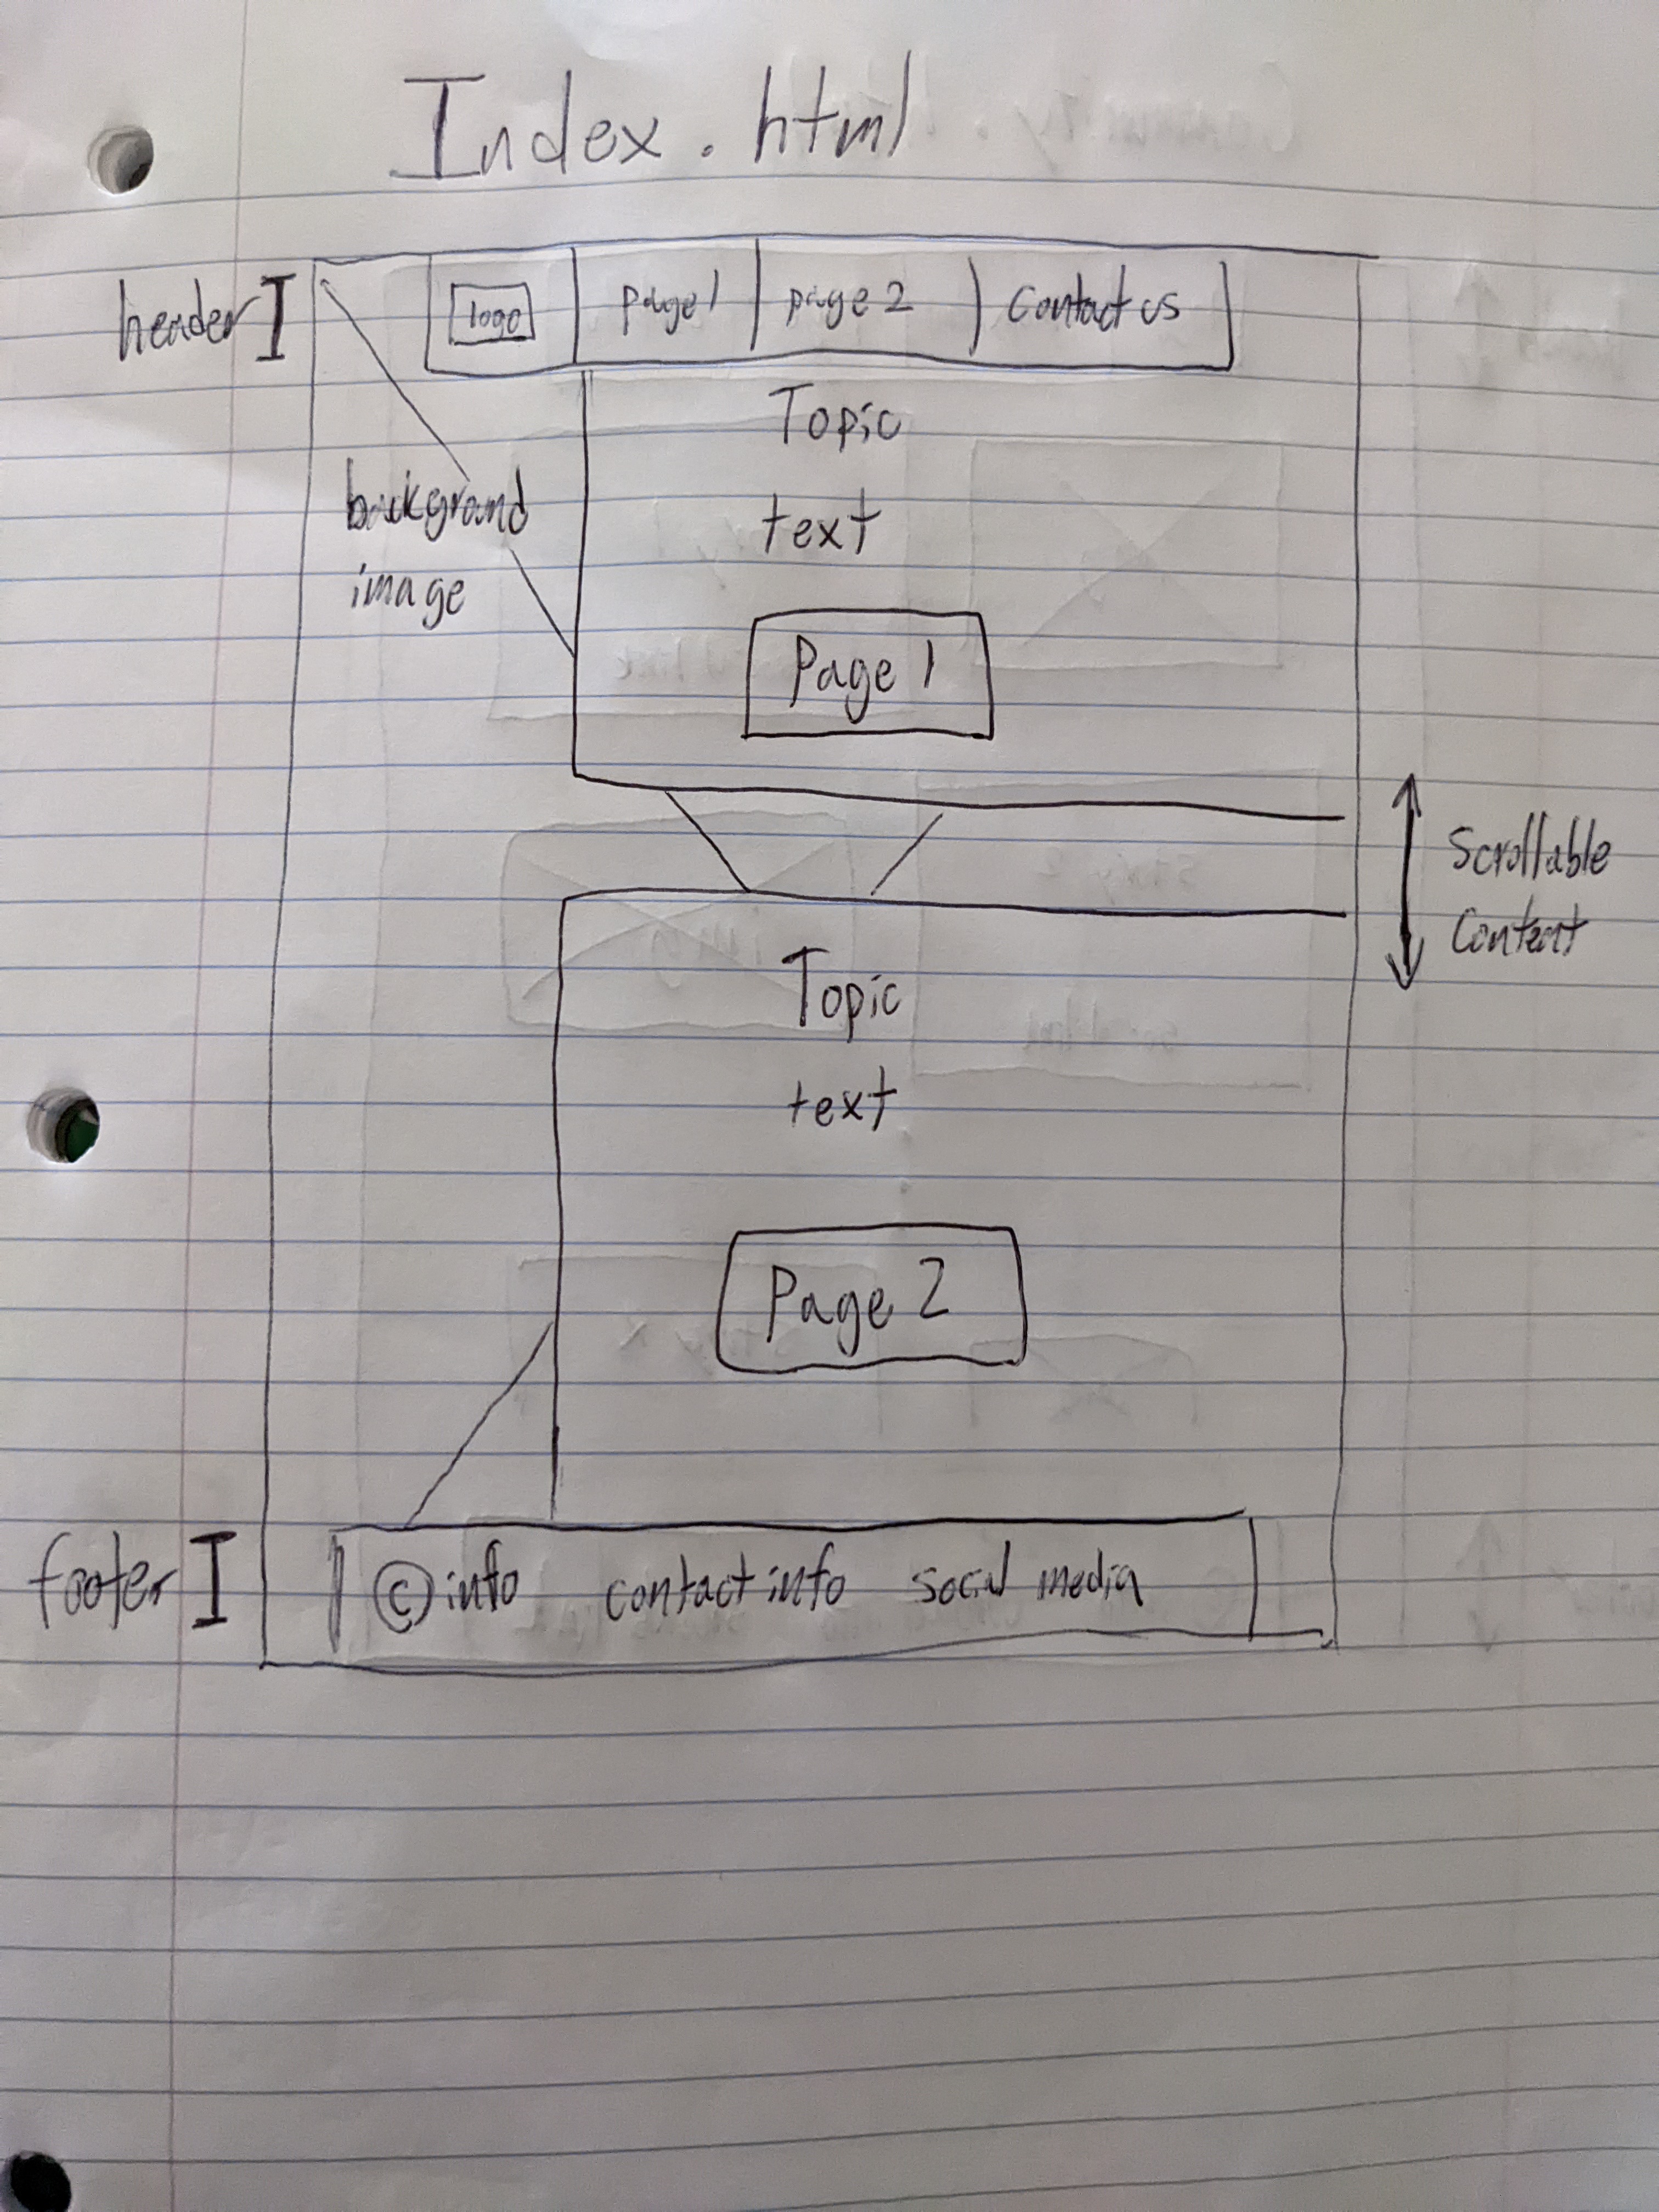 Index.html
header
logo
page 1
page 2
Contact us
Topic
text
background
image
Page 1
Scrollable
Content
Topic
text
Page 2
footer
© info contact info social media